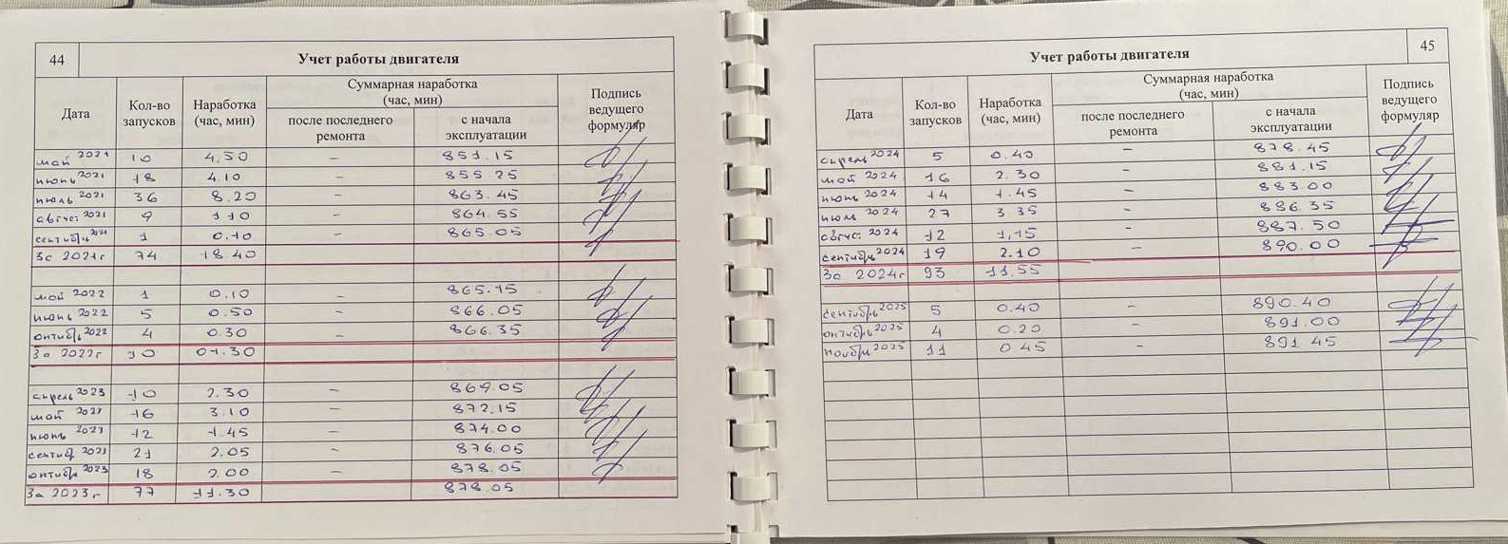 44 Учет работы двигателя
Дата Кол-во запусков Наработка (час, мин) Суммарная наработка (час, мин) Подпись ведущего формуляр
после последнего ремонта с начала эксплуатации
май 2021 10 4.50 – 851.15
июнь 2021 18 4.10 – 855 25
июль 2021 36 8.20 – 863.45
август 2021 9 1.10 – 864.55
сентябрь 2021 1 0.10 – 865.05
За 2021г 74 18 40
май 2022 1 0.10 – 865.15
июнь 2022 5 0.50 – 866.05
октябрь 2022 4 0.30 – 866.35
За 2022г 10 01.30
апрель 2023 10 2.30 – 869.05
май 2023 16 3.10 – 872.15
июнь 2023 12 1.45 – 874.00
сентяб 2023 21 2.05 – 876.05
октябр 2023 18 2.00 – 878.05
За 2023г 77 11.30 878.05
Учет работы двигателя 45
Дата Кол-во запусков Наработка (час, мин) Суммарная наработка (час, мин) Подпись ведущего формуляр
после последнего ремонта с начала эксплуатации
апрель 2024 5 0.40 – 878.45
май 2024 16 2.30 – 881.15
июнь 2024 14 1.45 – 883.00
июль 2024 27 3.35 – 886.35
август 2024 12 1.15 – 887.50
сентябрь 2024 19 2.10 – 890.00
За 2024г 93 11.55
сентябрь 2025 5 0.40 – 890.40
октябрь 2025 4 0.20 – 891.00
ноябрь 2025 11 0.45 – 891.45